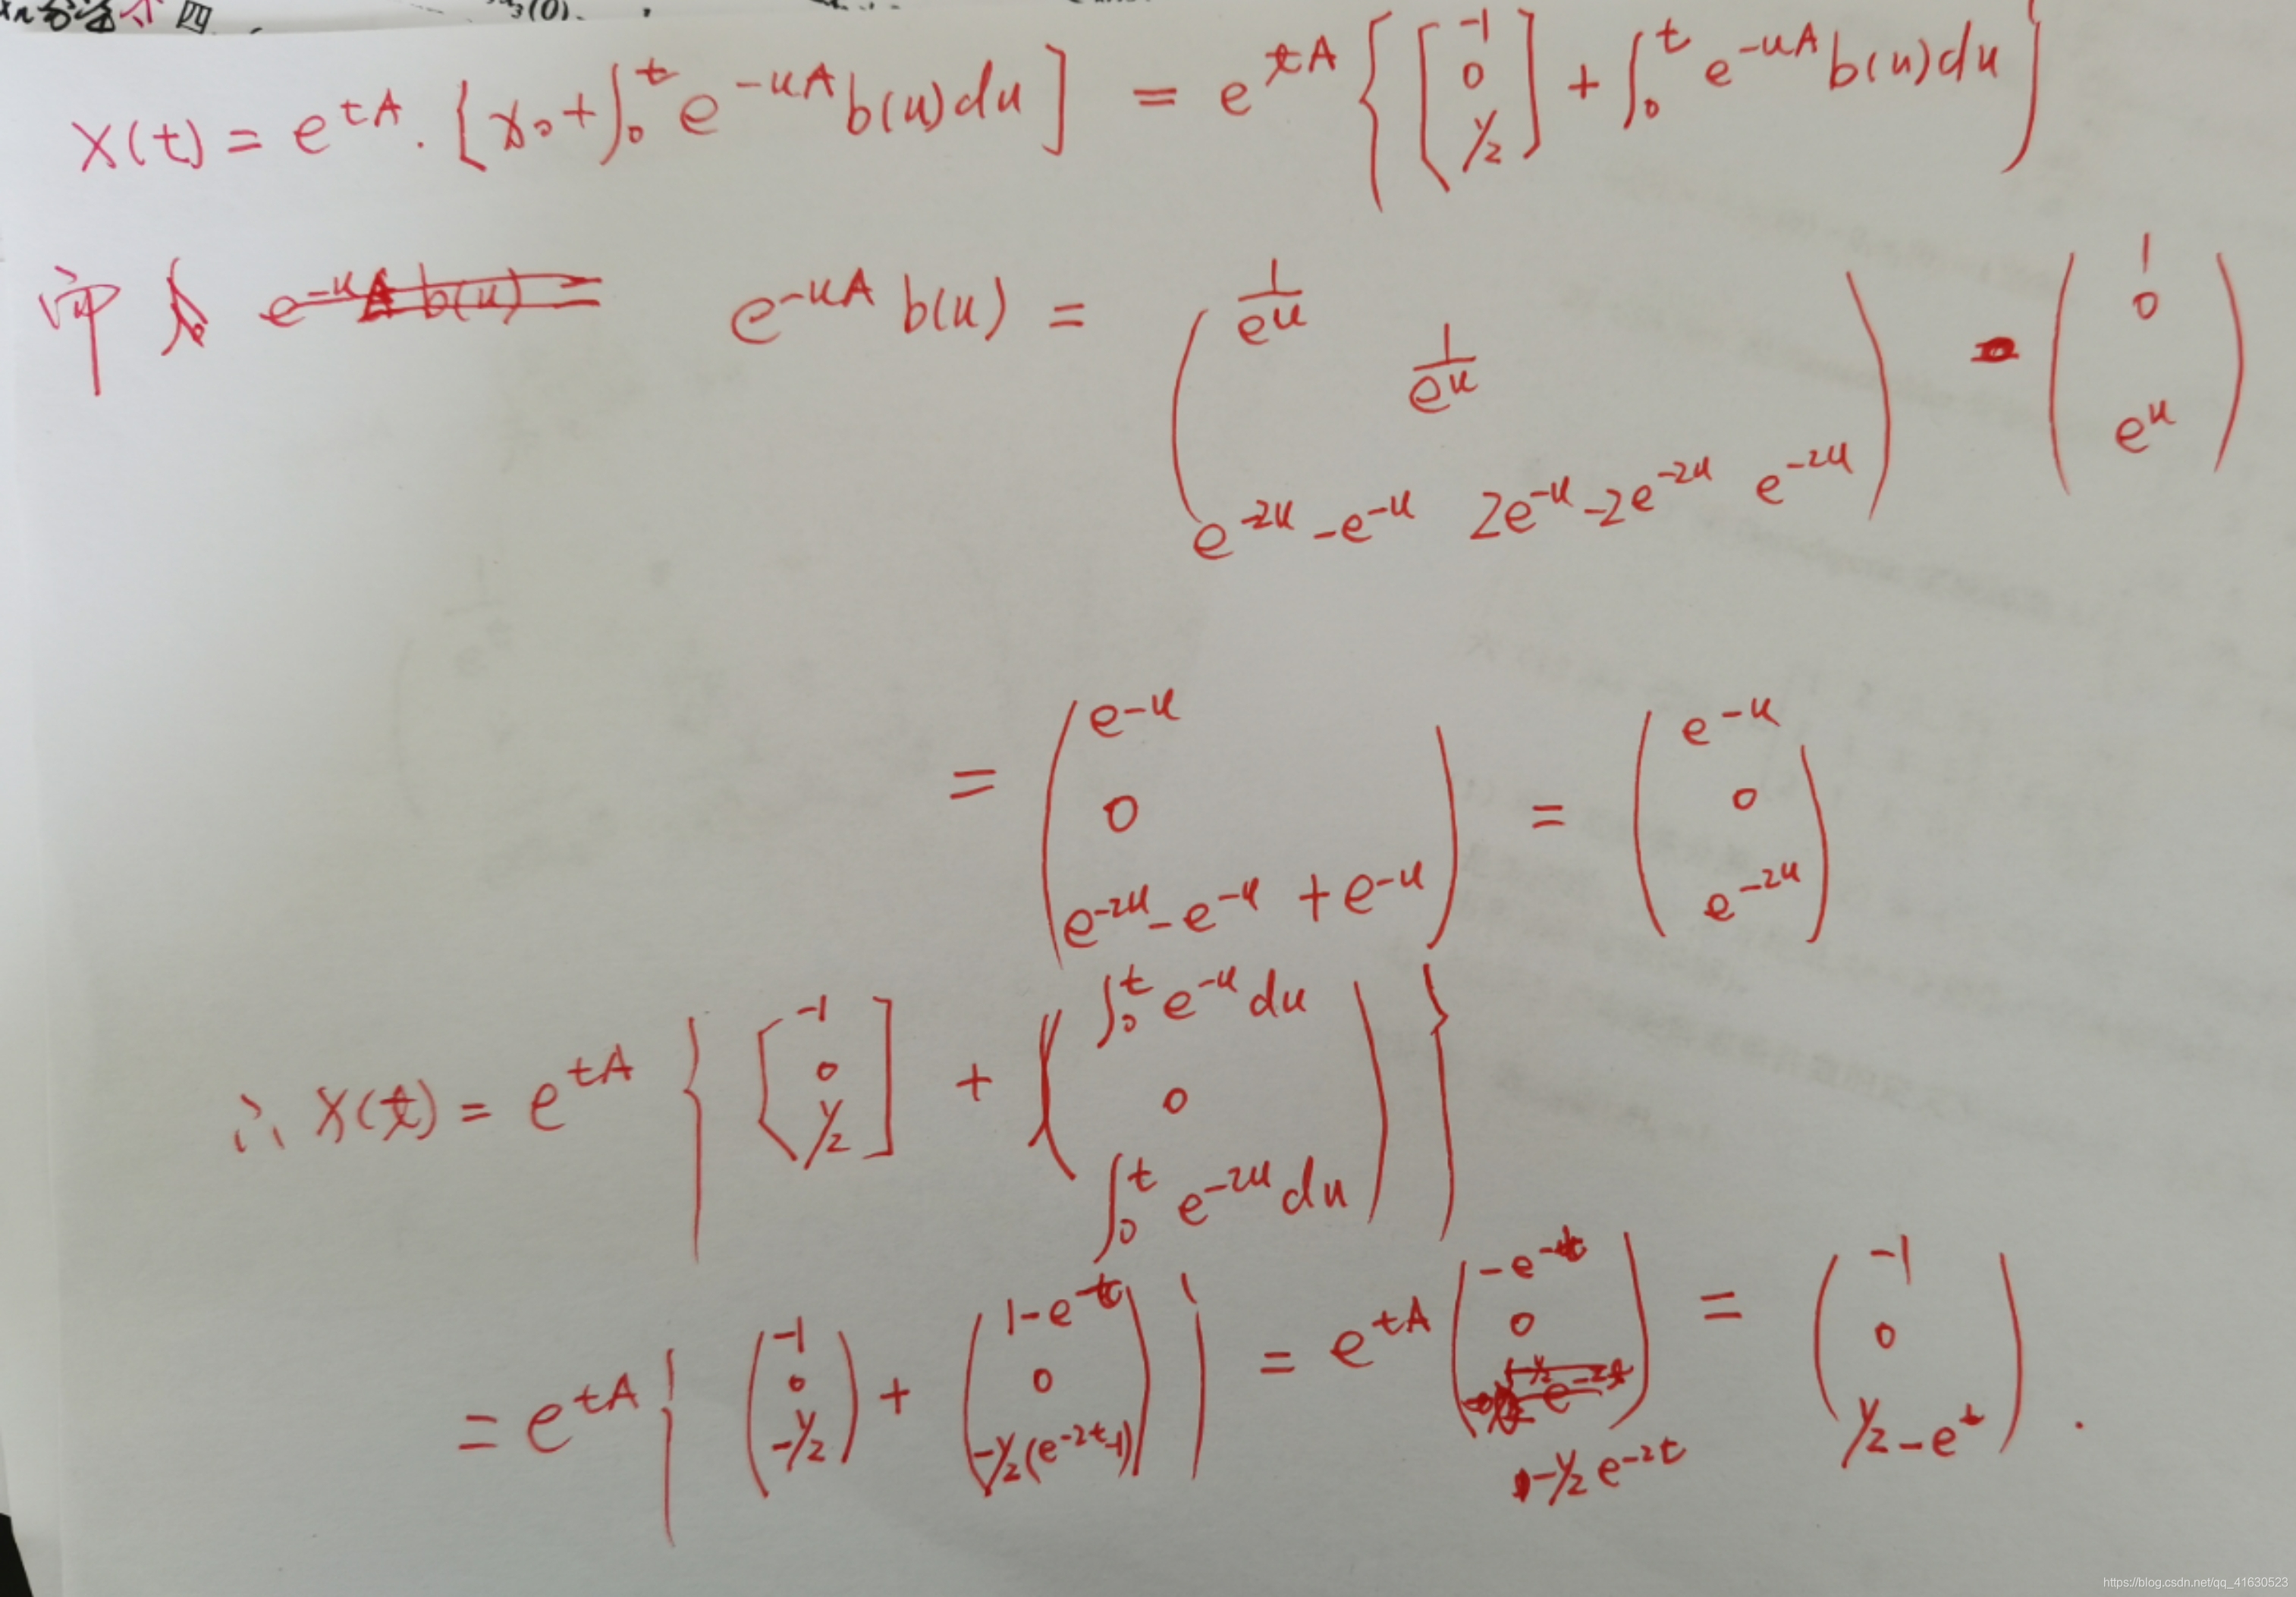 3(0).
X(t) = e^{tA} · [x_0 + ∫_0^t e^{-uA} b(u)du] = e^{tA} { [-1 0 1/2] + ∫_0^t e^{-uA} b(u)du }
e^{-uA} b(u) = e^{-uA} b(u) = ( 1/e^u 1/e^u e^{-2u} - e^{-u} 2e^{-u} - 2e^{-2u} e^{-2u} ) ( 1 0 e^u )
= ( e^{-u} 0 e^{-2u} - e^{-u} + e^{-u} ) = ( e^{-u} 0 e^{-2u} )
∴ X(t) = e^{tA} { [-1 0 1/2] + ( ∫_0^t e^{-u} du 0 ∫_0^t e^{-2u} du ) }
= e^{tA} { ( -1 0 -1/2 ) + ( 1-e^{-t} 0 -1/2(e^{-2t}-1) ) } = e^{tA} ( -e^{-t} 0 -1/2 e^{-2t} ) = ( -1 0 1/2 - e^t ) .
https://blog.csdn.net/qq_41630523